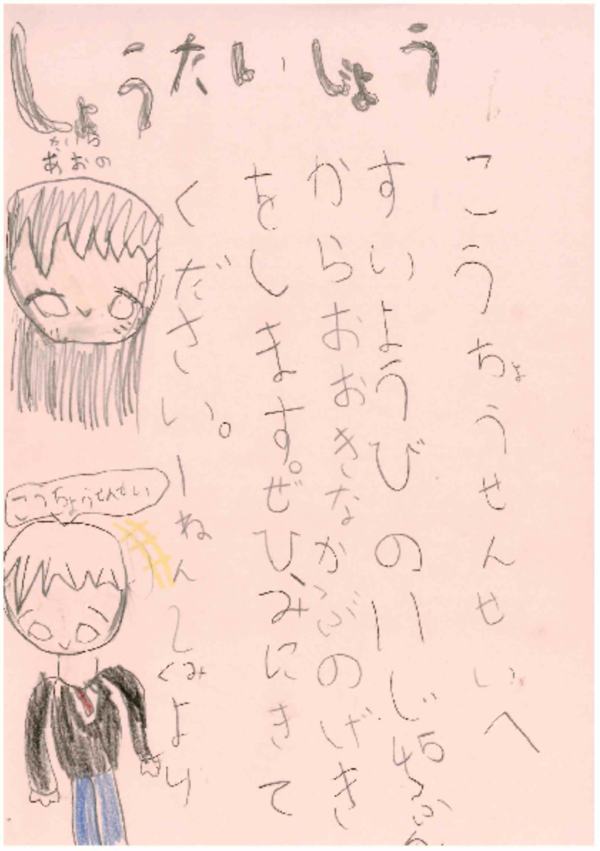 しょうたいいじょう
こうちょうせんせいへ
すいようびの11じ45ふん
からおおきなかぶのげき
をします。ぜひみにきて
ください。一ねん2くみより
あおの
こうちょうせんせい